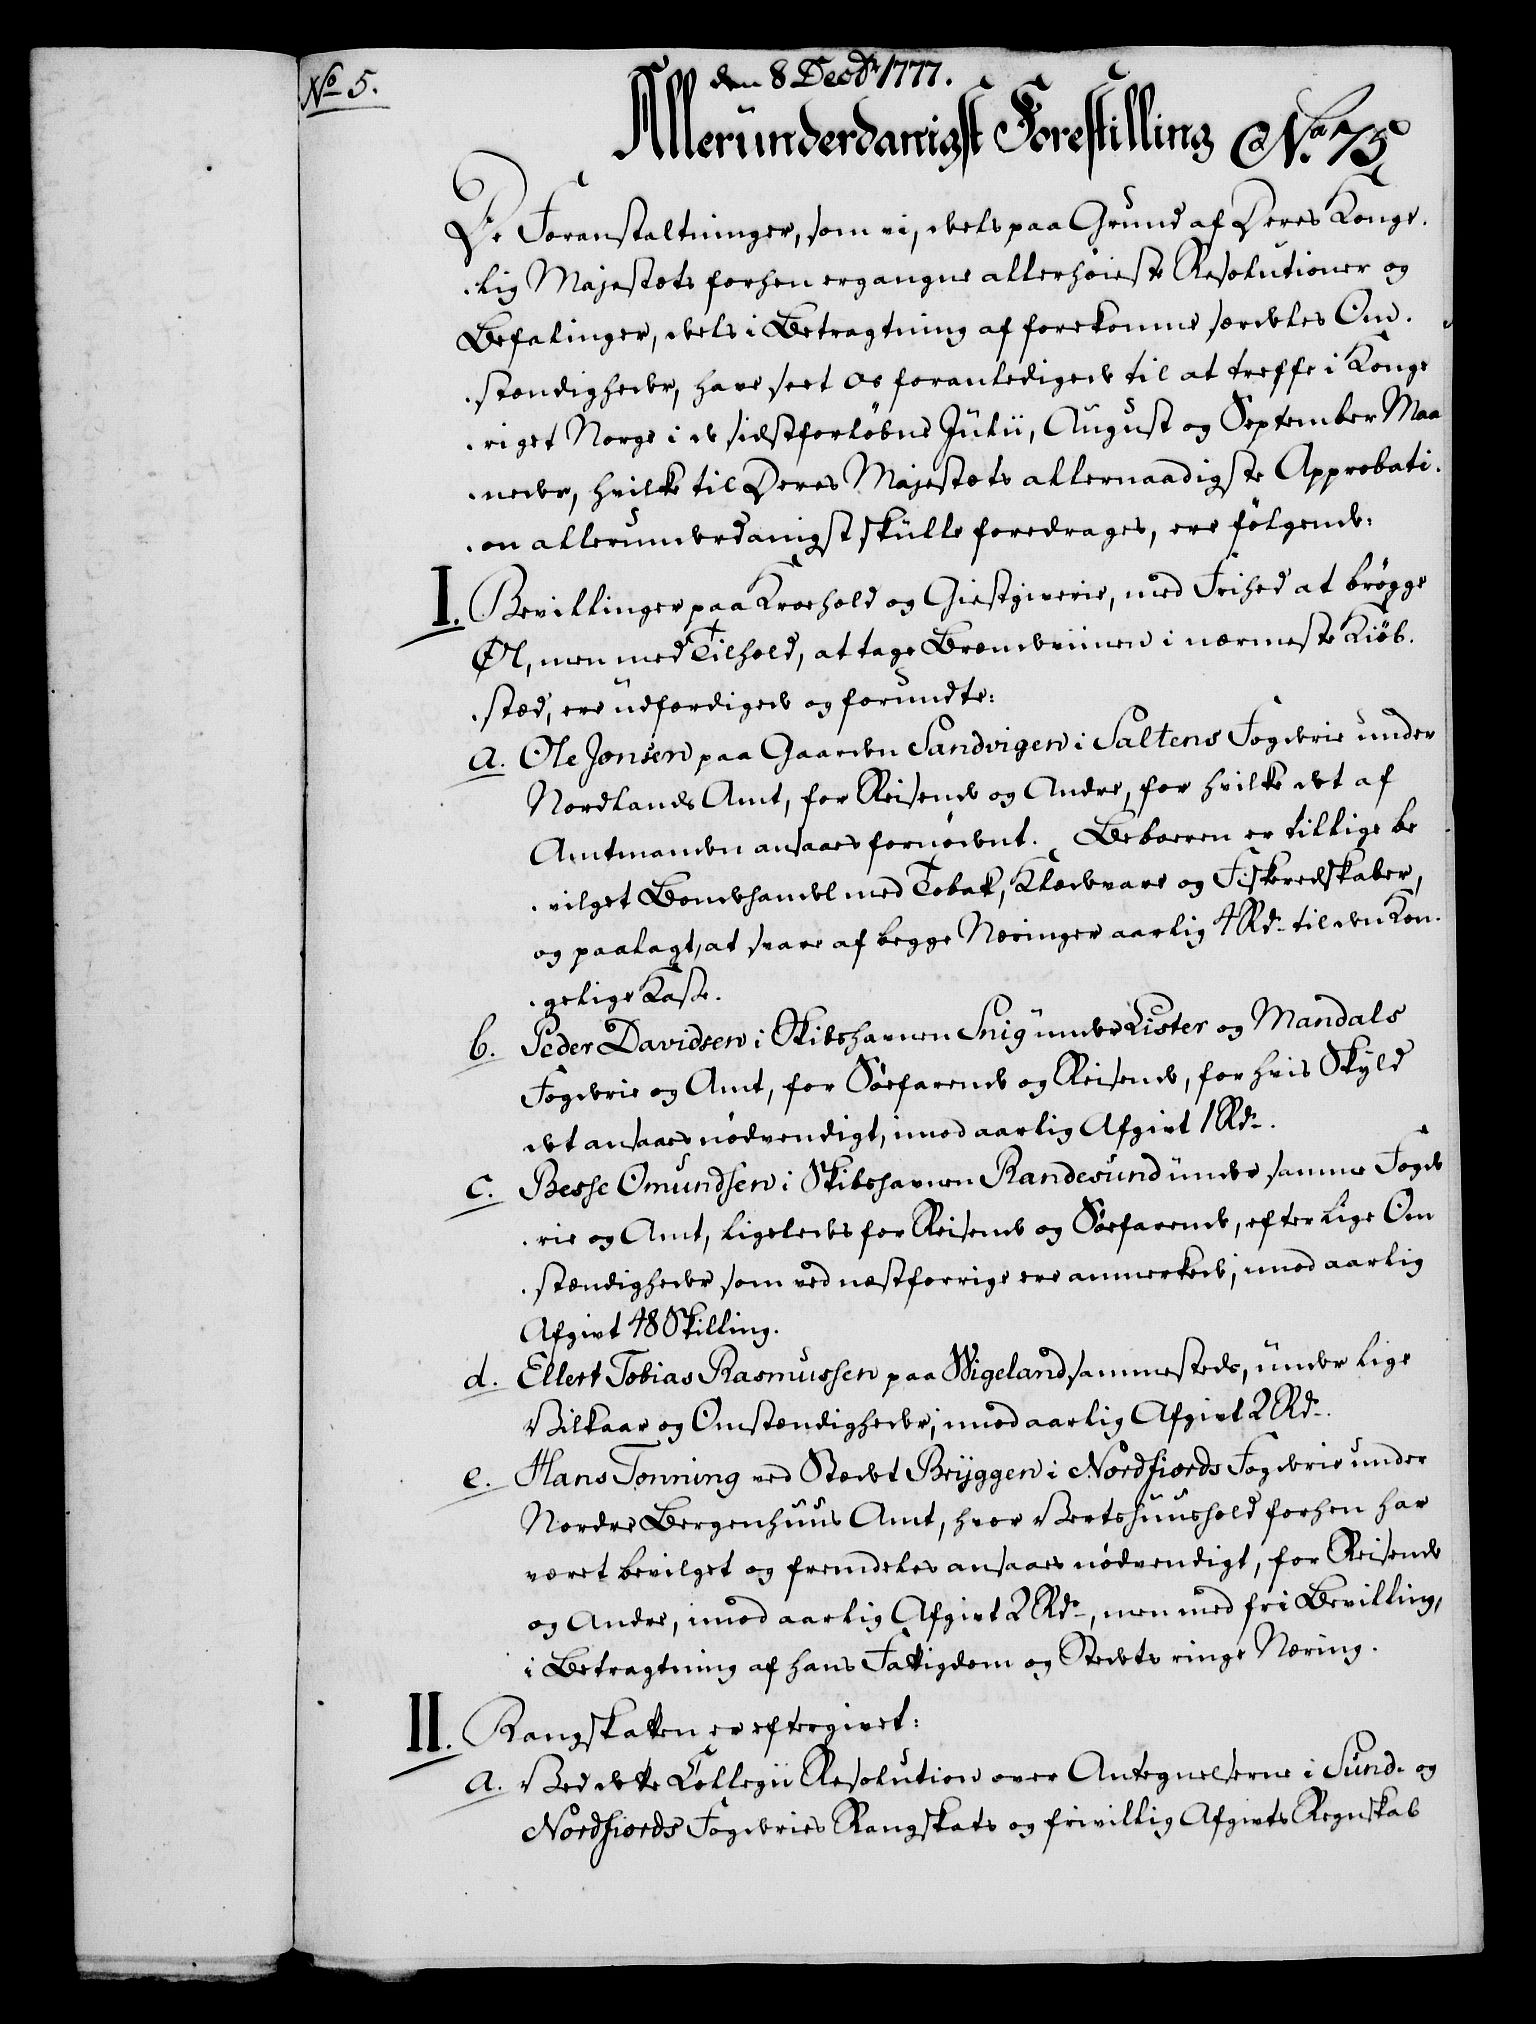 No 5.
den 8 Decbr 1777.
Allerunderdanigst Forestilling No. 75
De Foranstaltninger, som vi, deels paa Grund af Deres Konge-
-lig Majestæts forhen ergangne allerhøieste Resolutioner og
Befalinger, deels i Betragtning af forekomne særdeles Om-
-stændigheder, have seet os foranledigede til at treffe i Konge
-riget Norge i de sidstforløbne Julii, August og September Maa
-neder, hvilke til Deres Majestæts allernaadigste Approbati-
-on allerunderdanigst skulle foredrages, ere følgende:
I. Bevillinger paa Kroehold og Giestgiverie, med Frihed at brøgge
Øl, men med Tilhold, at tage Brændeviinen i nærmeste Kiøb-
-stæd, ere udfærdigede og forundte:
a. Ole Jonsen paa Gaarden Sandvigen i Saltens Fogderie under
Nordlands Amt, for Reisende og Andre, for hvilke det af
Amtmanden ansaaes fornødent. Beboeren er tillige be
-vilget Bondehandel med Tobak, Klædevare og Fiskeredskaber,
og paalagt, at svare af begge Næringer aarlig 4 Rdr til den Kon-
-gelige Kasse.
b. Peder Davidsen i Skibshavnen Snig under Lister og Mandals
Fogderie og Amt, for Søefarende og Reisende, for hvis Skyld
det ansaaes nødvendigt, imod aarlig Afgivt 1 Rdr.
c. Besse Omundsen i Skibshavnen Randesund under samme Fogde
-rie og Amt, ligeledes for Reisende og Søefarende, efter lige Om
-stændigheder som ved næstforrige ere anmerkede, imod aarlig
Afgivt 48 Skilling.
d. Ellert Tobias Rasmussen paa Wigeland sammesteds, under lige
Vilkaar og Omstændigheder, imod aarlig Afgivt 2 Rdr.
e. Hans Tonning ved Stædet Bryggen i Nordfiords Fogderie under
Nordre Bergenhuus Amt, hvor Vertshuushold forhen har
været bevilget og fremdeles ansaaes nødvendigt, for Reisende
og Andre, imod aarlig Afgivt 2 Rdr, men med fri Bevilling,
i Betragtning af hans Fattigdom og Stedets ringe Næring.
II. Rangskatten er eftergivet:
a. Ved dette Collegii Resolution over Antegnelserne i Sund- og
Nordfiords Fogderies Rangskats og frivillig Afgivts Regnskab